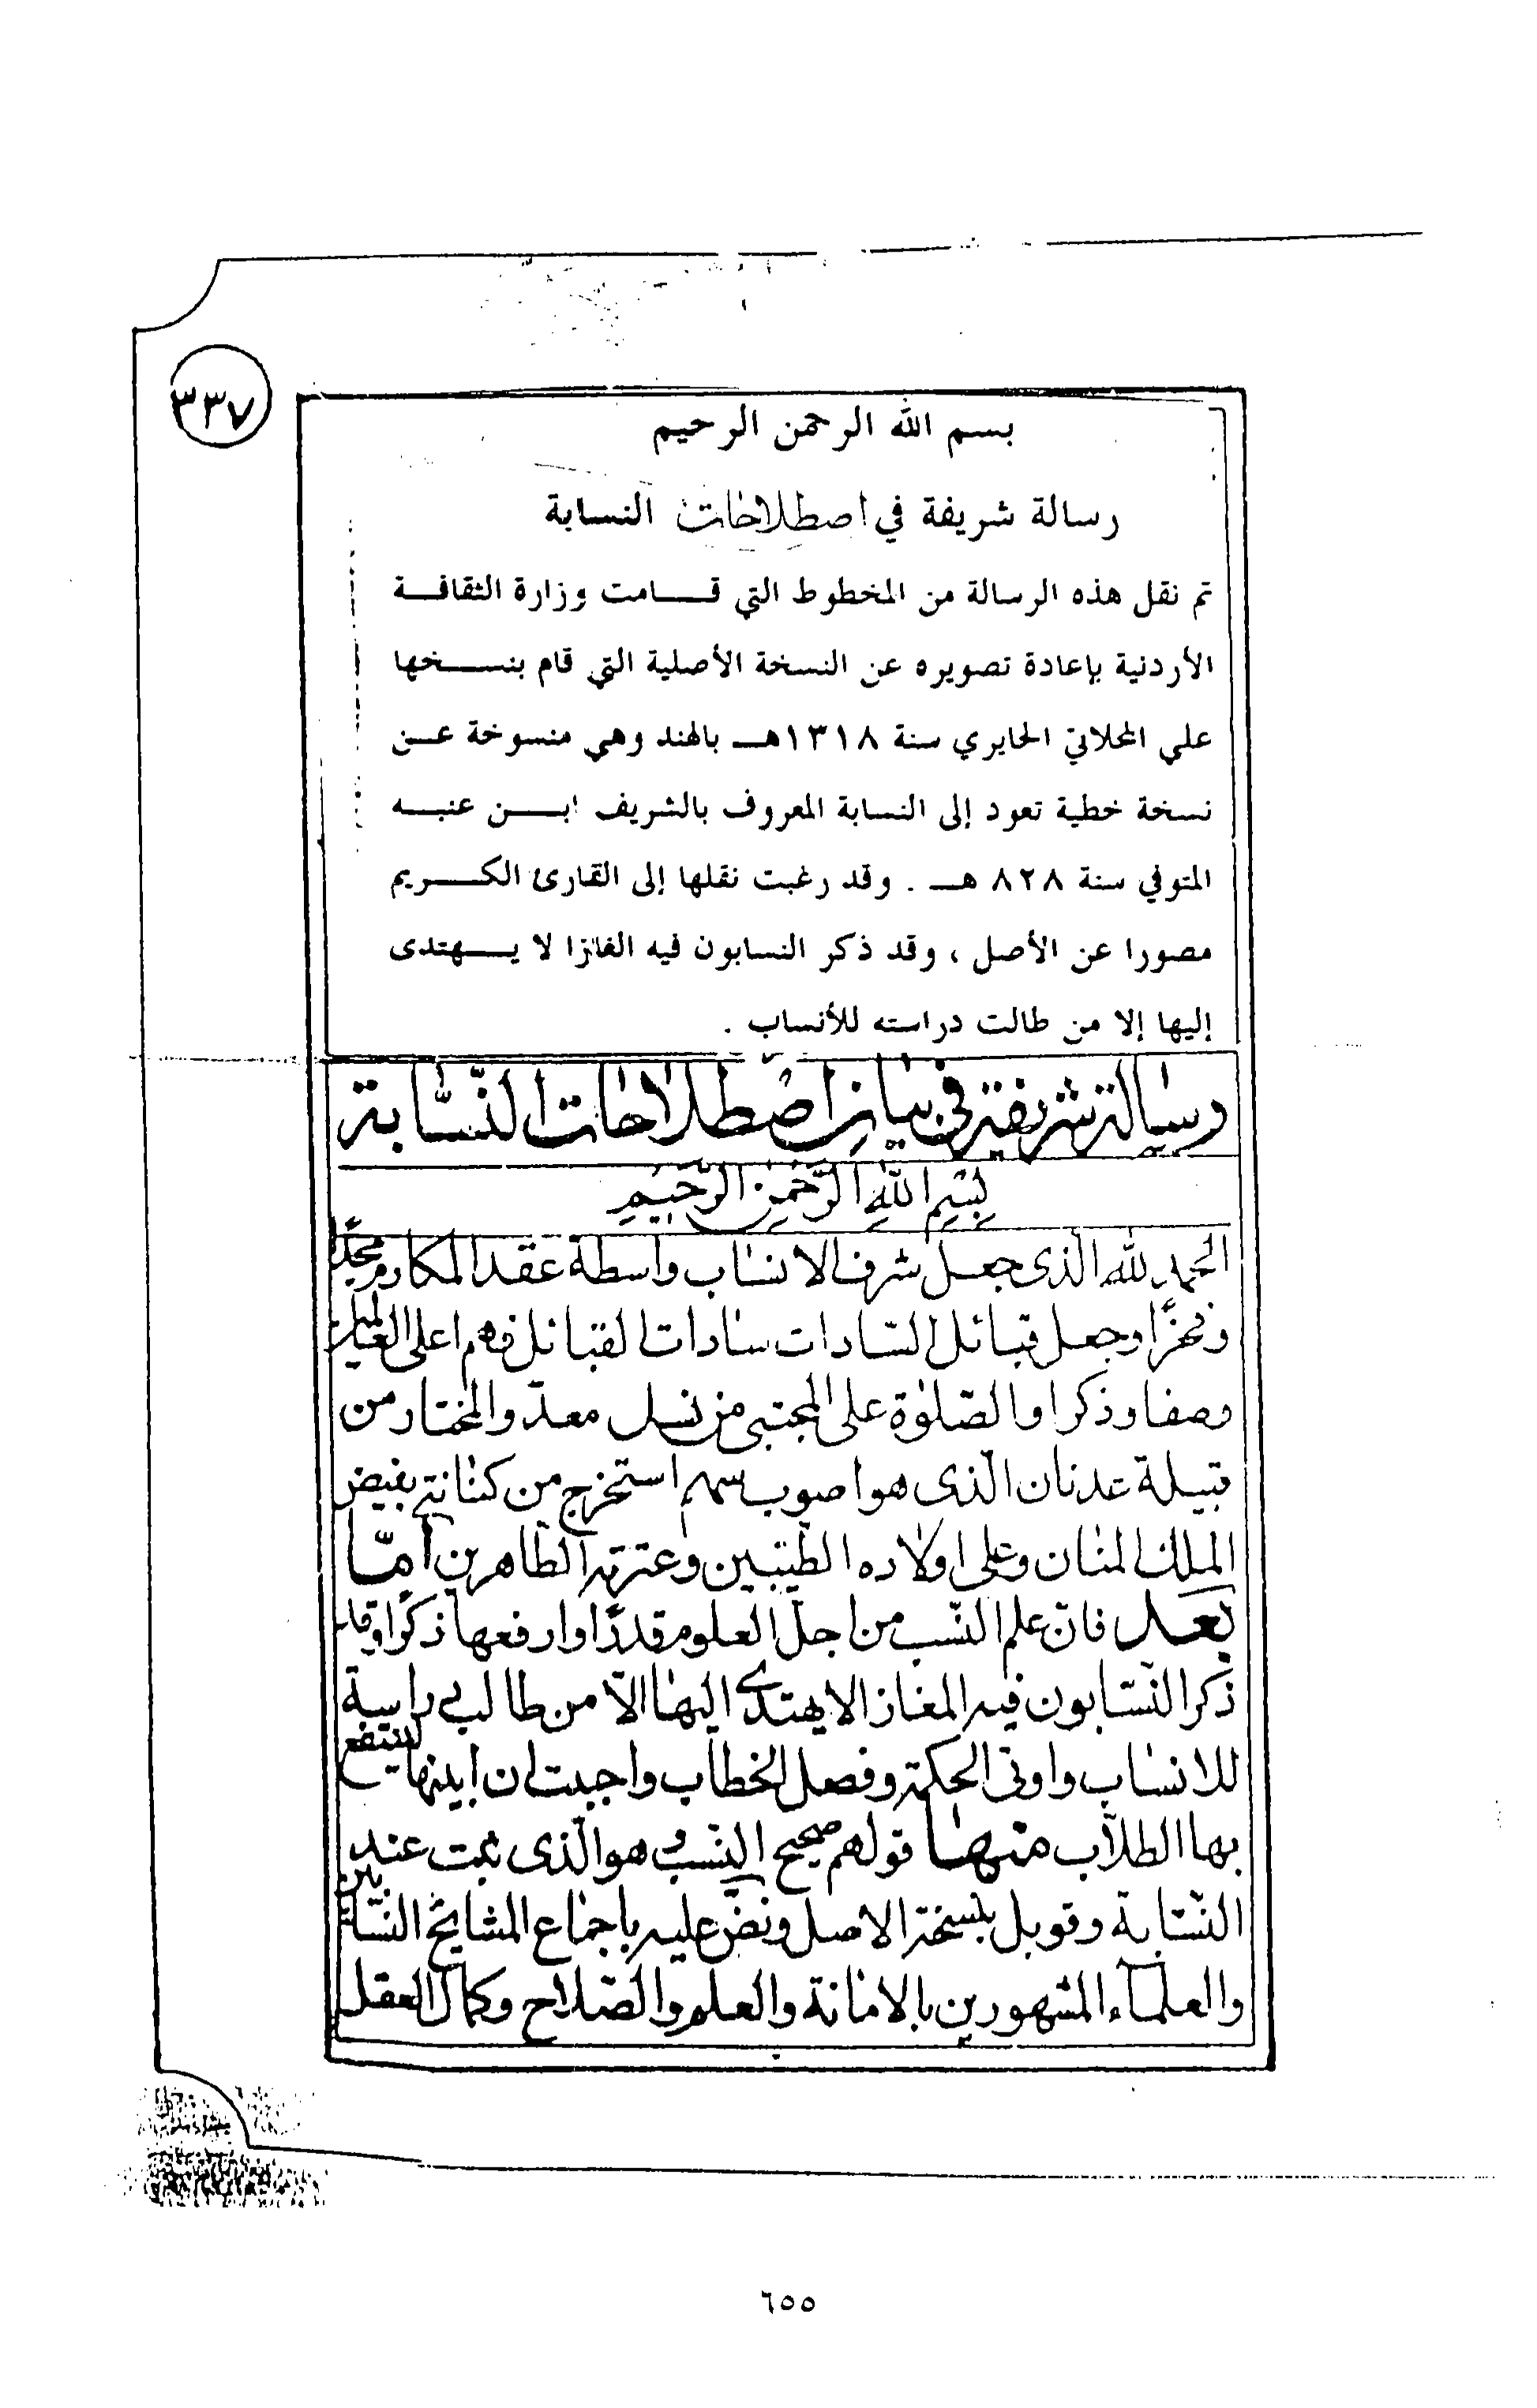 ٣٣٧
بسم الله الرحمن الرحيم
رسالة شريفة في اصطلاحات النسابة
تم نقل هذه الرسالة من المخطوط التي قـــامت وزارة الثقافـــة
الأردنية بإعادة تصويره عن النسخة الأصلية التي قام بنســـخها
علي المحلاتي الحايري سنة ١٣١٨هـــ بالهند وهي منسوخة عـــن
نسخة خطية تعود إلى النسابة المعروف بالشريف ابـــن عنبـــه
المتوفي سنة ٨٢٨ هـــ . وقد رغبت نقلها إلى القارئ الكـــريم
مصورا عن الأصل ، وقد ذكر النسابون فيه الغازا لا يـــهتدى
إليها إلا من طالت دراسته للأنساب .
رسالة شريفة في بيان اصطلاحات النسّابة
بِسْمِ اللهِ الرَّحْمٰنِ الرَّحِيمِ
الحمد لله الّذى جعل شرف الانساب واسطة عقد المكارم مجدًا
وفخرًا وجعل قبائل السّادات سادات القبائل فهم اعلى العالمين
وصفا وذكرا والصّلوٰة على المجتبى من نسل معدّ والمختار من
قبيلة عدنان الّذى هو اصوب سهم استخرج من كنانته بفيض
الملك المنان وعلى اولاده الطّيّبين وعترته الطّاهرين امّا
بعد فان علم النّسب من اجلّ العلوم قدرًا وارفعها ذكرًا وقد
ذكر النّسّابون فيه المغاز الا يهتدى اليها الّا من طالب دراسة
للانساب واوتى الحكمة وفصل الخطاب واحببت ان ابينها لينتفع
بها الطلّاب منها قولهم صحيح النّسب و هو الّذى ثبت عند
النّسّابة وقوبل بنسخة الاصل ونصّ عليه باجماع المشايخ النسّابين
والعلماء المشهورين بالامانة والعلم والصّلاح وكمال العقل
٦٥٥